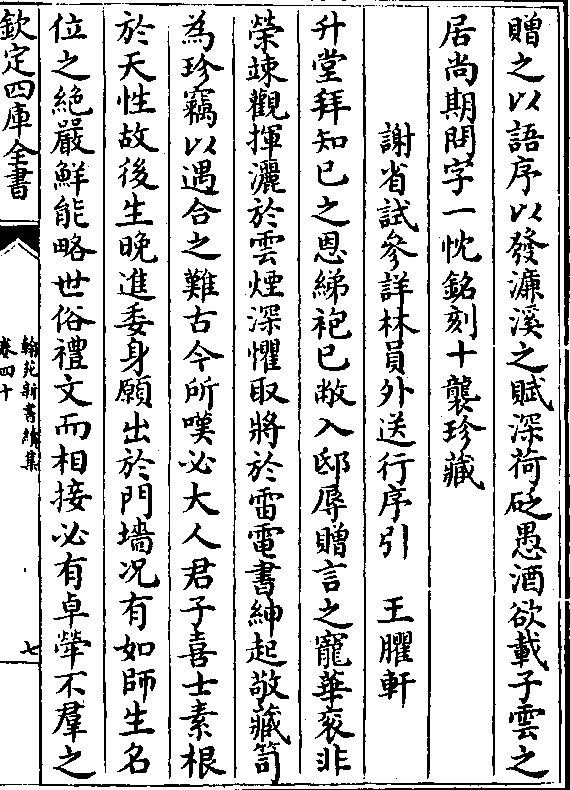 贈之以語序以發濂溪之賦深荷砭愚酒欲載子雲之
居尚期問字一忱銘刻十襲珍藏
謝省試參詳林員外送行序引　王臞軒
升堂拜知已之恩綈袍已敝入邸辱贈言之寵華衮非
榮竦觀揮灑於雲煙深懼取將於雷電書紳起敬藏笥
為珍竊以遇合之難古今所嘆必大人君子喜士素根
於天性故後生晚進委身願出於門墻况有如師生名
位之絶嚴鮮能略世俗禮文而相接必有卓犖不羣之
欽定四庫全書
翰苑新書續集
卷四十
七